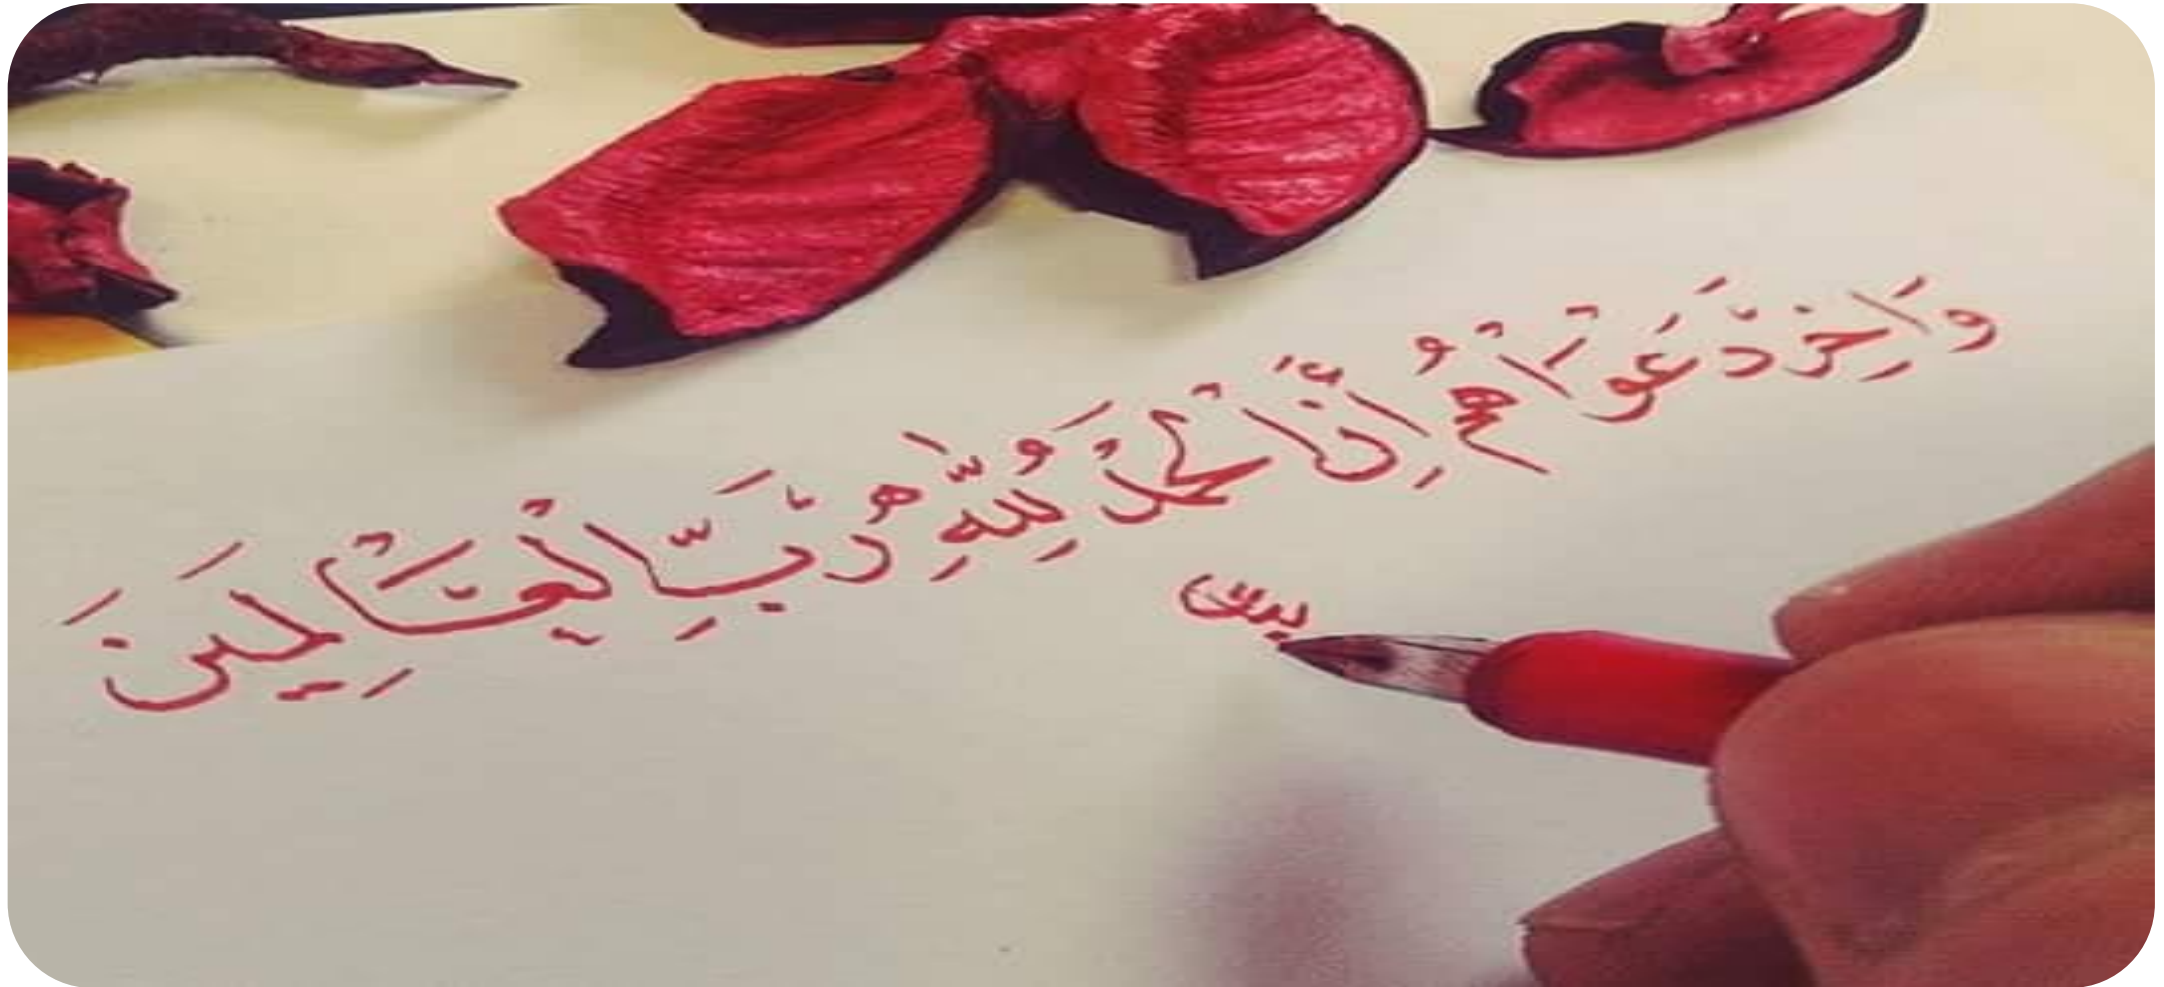 وَاٰخِرُ دَعْوَاهُمْ اَنِ الْحَمْدُ لِلّٰهِ رَبِّ الْعَالَمِينَ